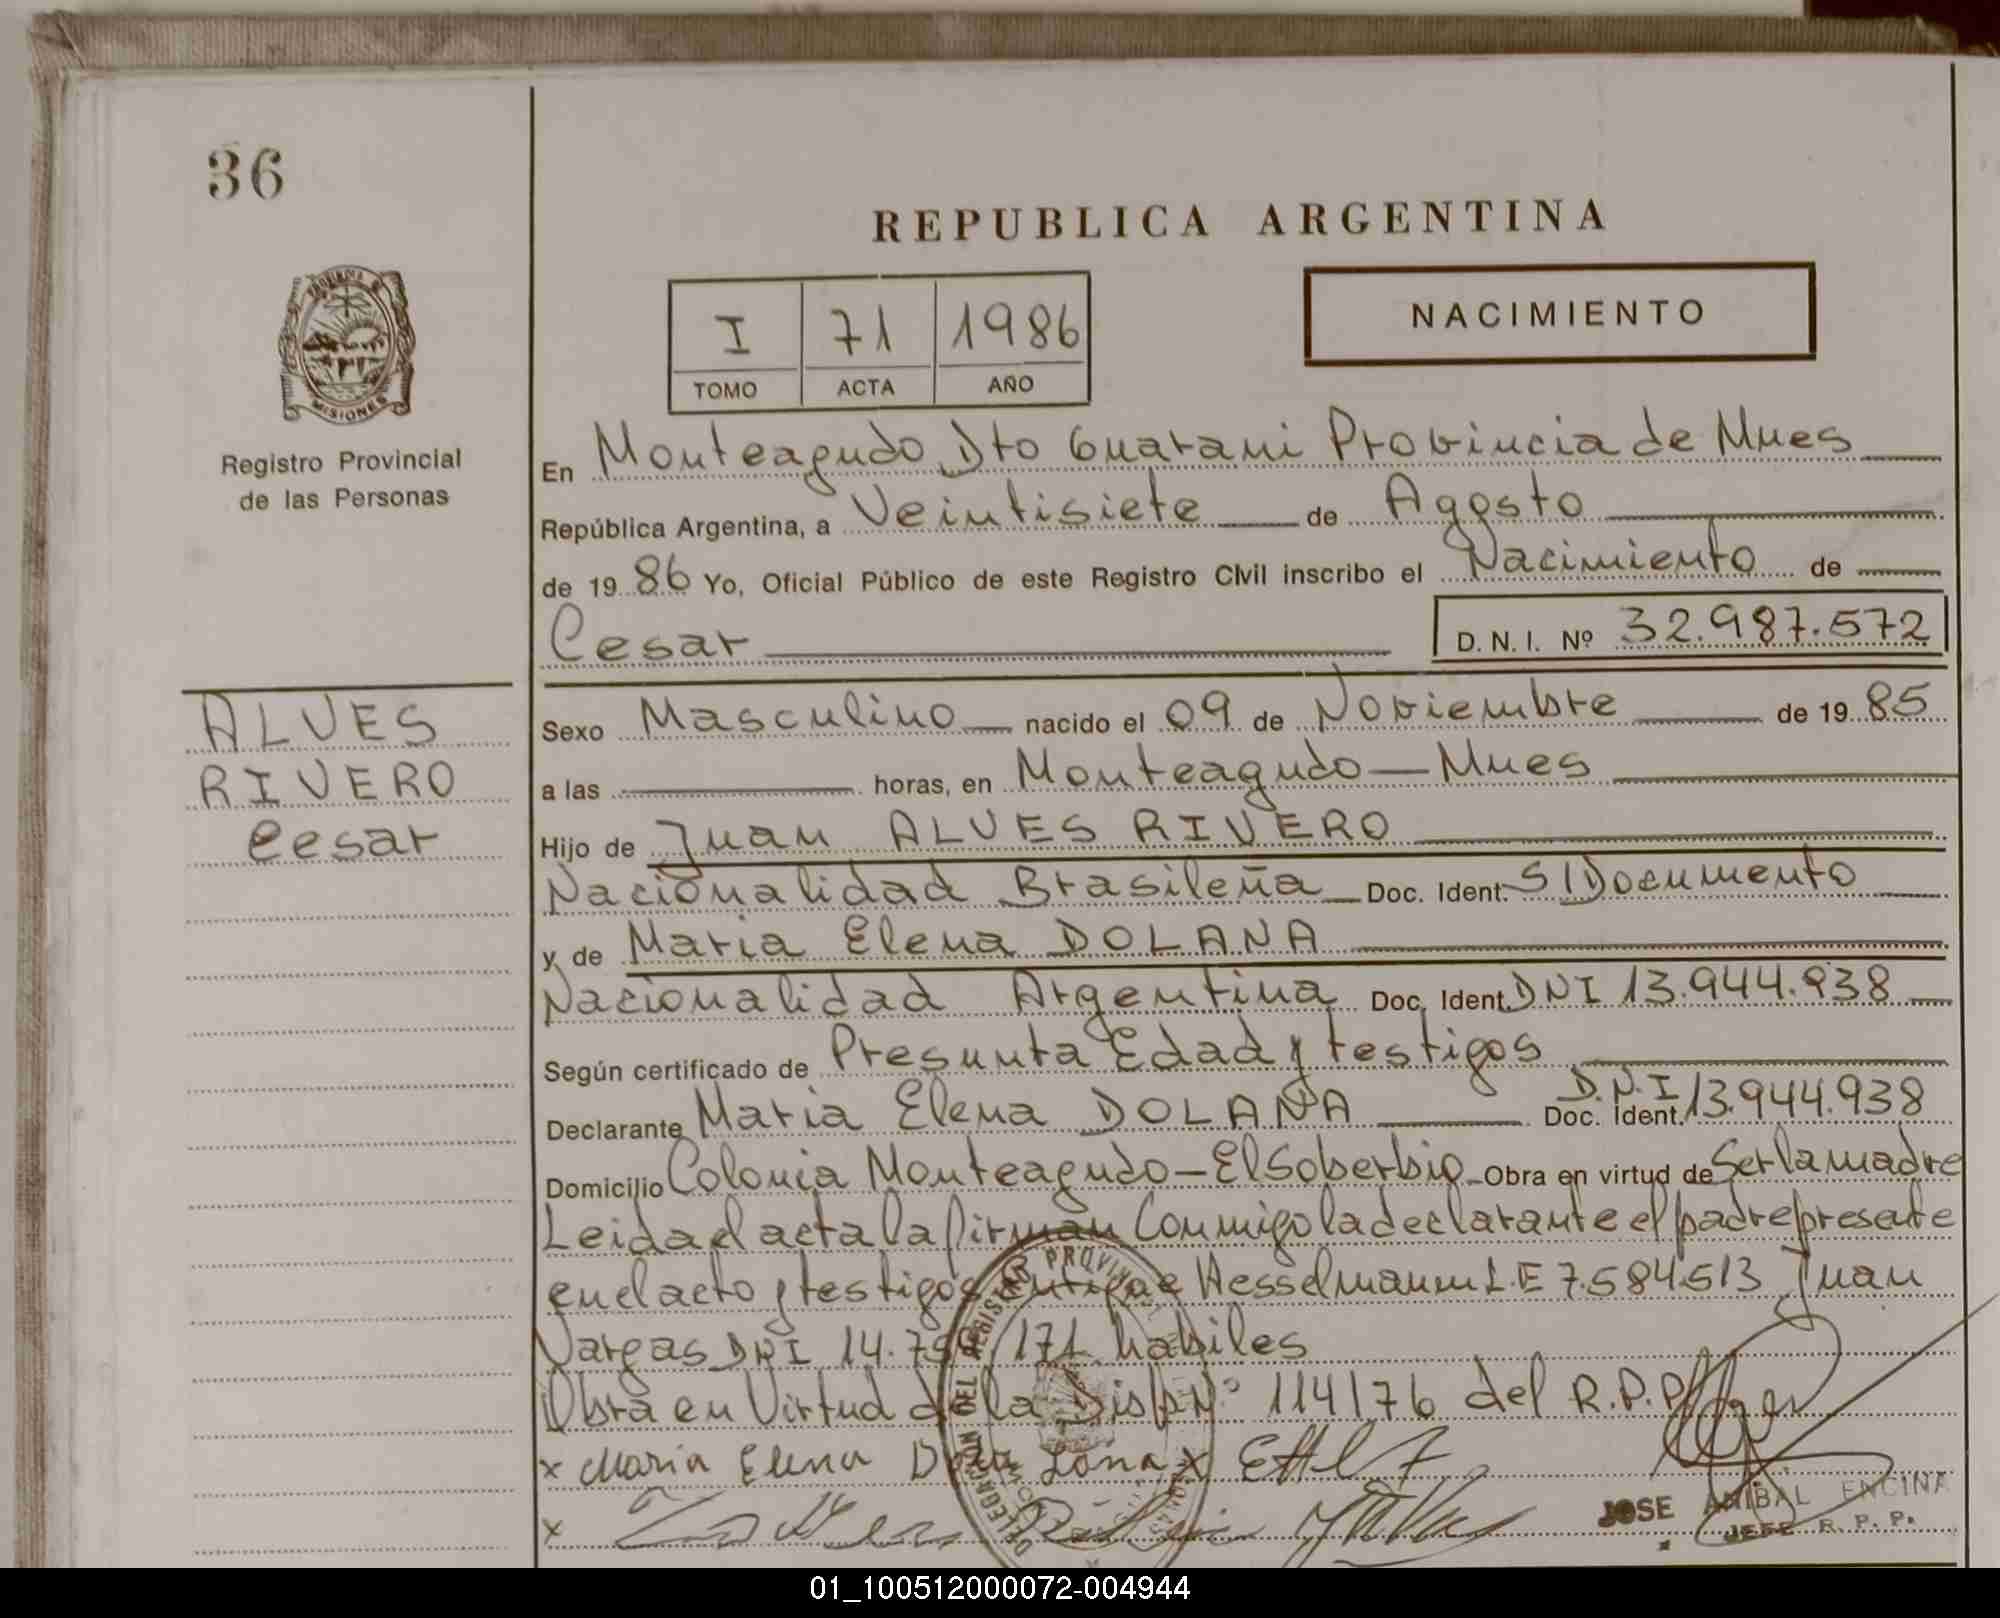 36
REPUBLICA ARGENTINA
I 71 1986
TOMO ACTA AÑO
NACIMIENTO
PROVINCIA DE
MISIONES
Registro Provincial
de las Personas
ALVES
RIVERO
Cesar
En Monteagudo Dto Guarani Provincia de Mnes
República Argentina, a Veintisiete de Agosto
de 19 86 Yo, Oficial Público de este Registro Civil inscribo el Nacimiento de
Cesar D. N. I. Nº 32.987.572
Sexo Masculino nacido el 09 de Noviembre de 19 85
a las horas, en Monteagudo - Mnes
Hijo de Juan ALVES RIVERO
Nacionalidad Brasileña Doc. Ident. S/Documento
y de Maria Elena DOLANA
Nacionalidad Argentina Doc. Ident. DNI 13.944.938
Según certificado de Presunta Edad y testigos
Declarante Maria Elena DOLANA Doc. Ident. D.N.I 13.944.938
Domicilio Colonia Monteagudo - El Soberbio Obra en virtud de Ser la madre
Leida el acta la firman Conmigo la declarante el padre presente
en el acto y testigos Hesselmann L.E 7.584.513 Juan
Vargas DNI 14. 171 habiles
Obra en Virtud de la Disp Nº 114176 del R.P.P
x Maria Elena Do Lana x
x
JOSE ANIBAL ENCINA
JEFE R. P. P.
01_100512000072-004944